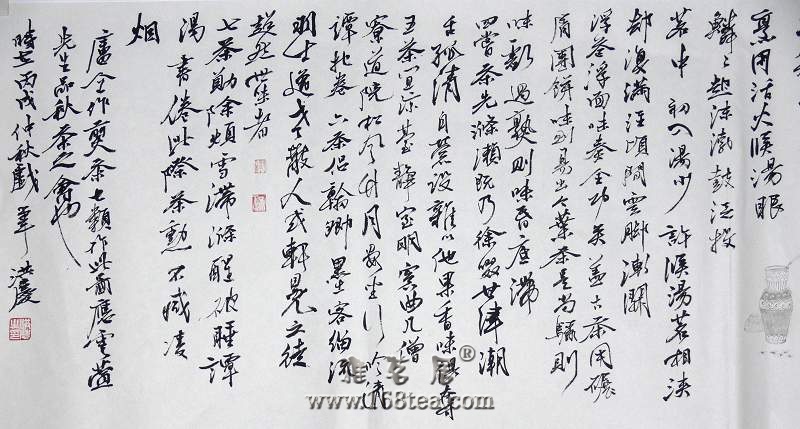 烹用活火候湯眼
鱗鱗起沫渤鼓泛投
茗中初入湯少許候湯茗相浹
却復滿注頃間雲脚漸開
浮花浮面味奏全功矣蓋古茶用碾
屑團餅味則易出今葉茶是尚驟則
味虧過熟則味昏底滯
四嘗茶先滌漱既乃徐啜甘津潮
舌孤清自縈設雜以他果香味俱奪
五茶宜涼臺靜室明窗曲几僧
寮道院松風竹月晏坐行吟清
譚把卷六茶侣翰卿墨客緇流
羽士逸老散人或軒冕之徒
超然世味者
七茶勛除煩雪滯滌醒破睡譚
渴書倦此際茶勲不減凌
烟
盧仝作煎茶七類作此齋應雲
先生品秋茶之會也
時在丙戌仲秋戲筆洪慶
雅茗居®
www.168tea.com